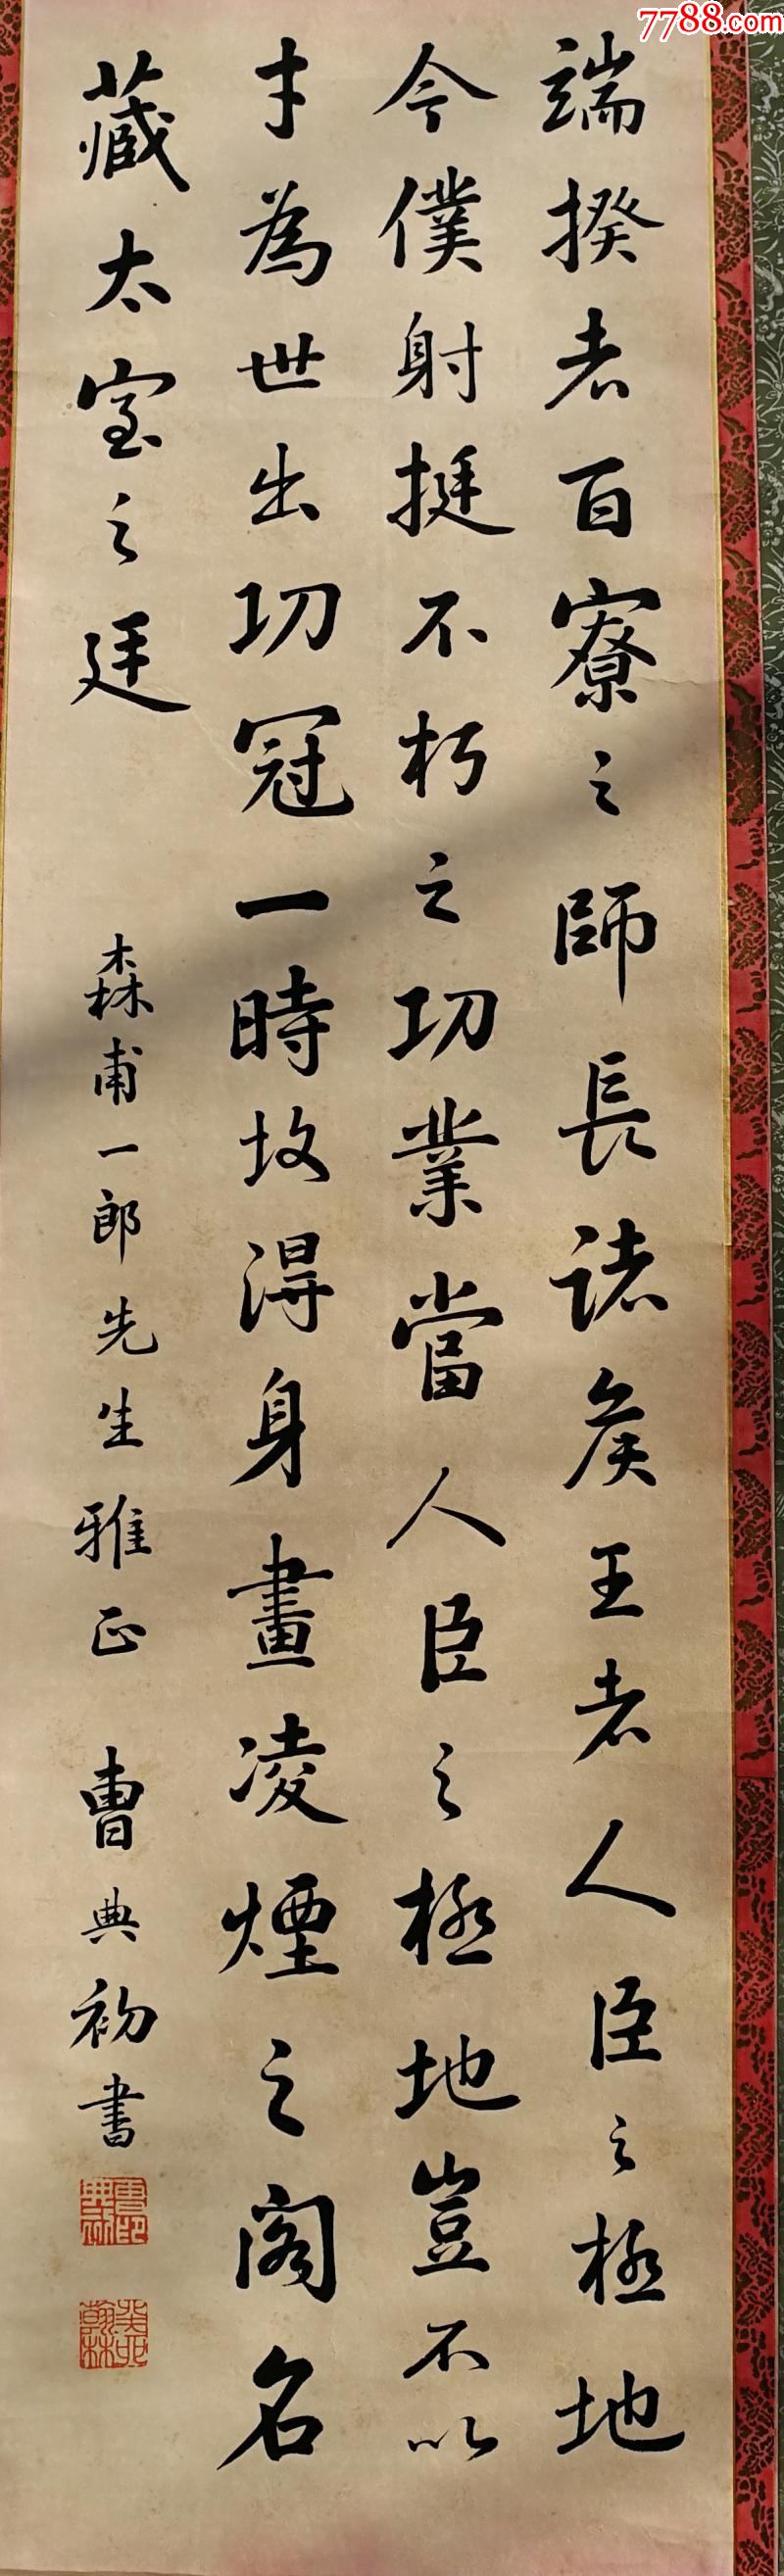 7788.com
端揆者百寮之師長諸矦王者人臣之極地
今僕射挺不朽之功業當人臣之極地豈不以
才為世出功冠一時故得身畫凌煙之阁名
藏太室之廷
森甫一郎先生雅正
曹典初書
癸卯翰林